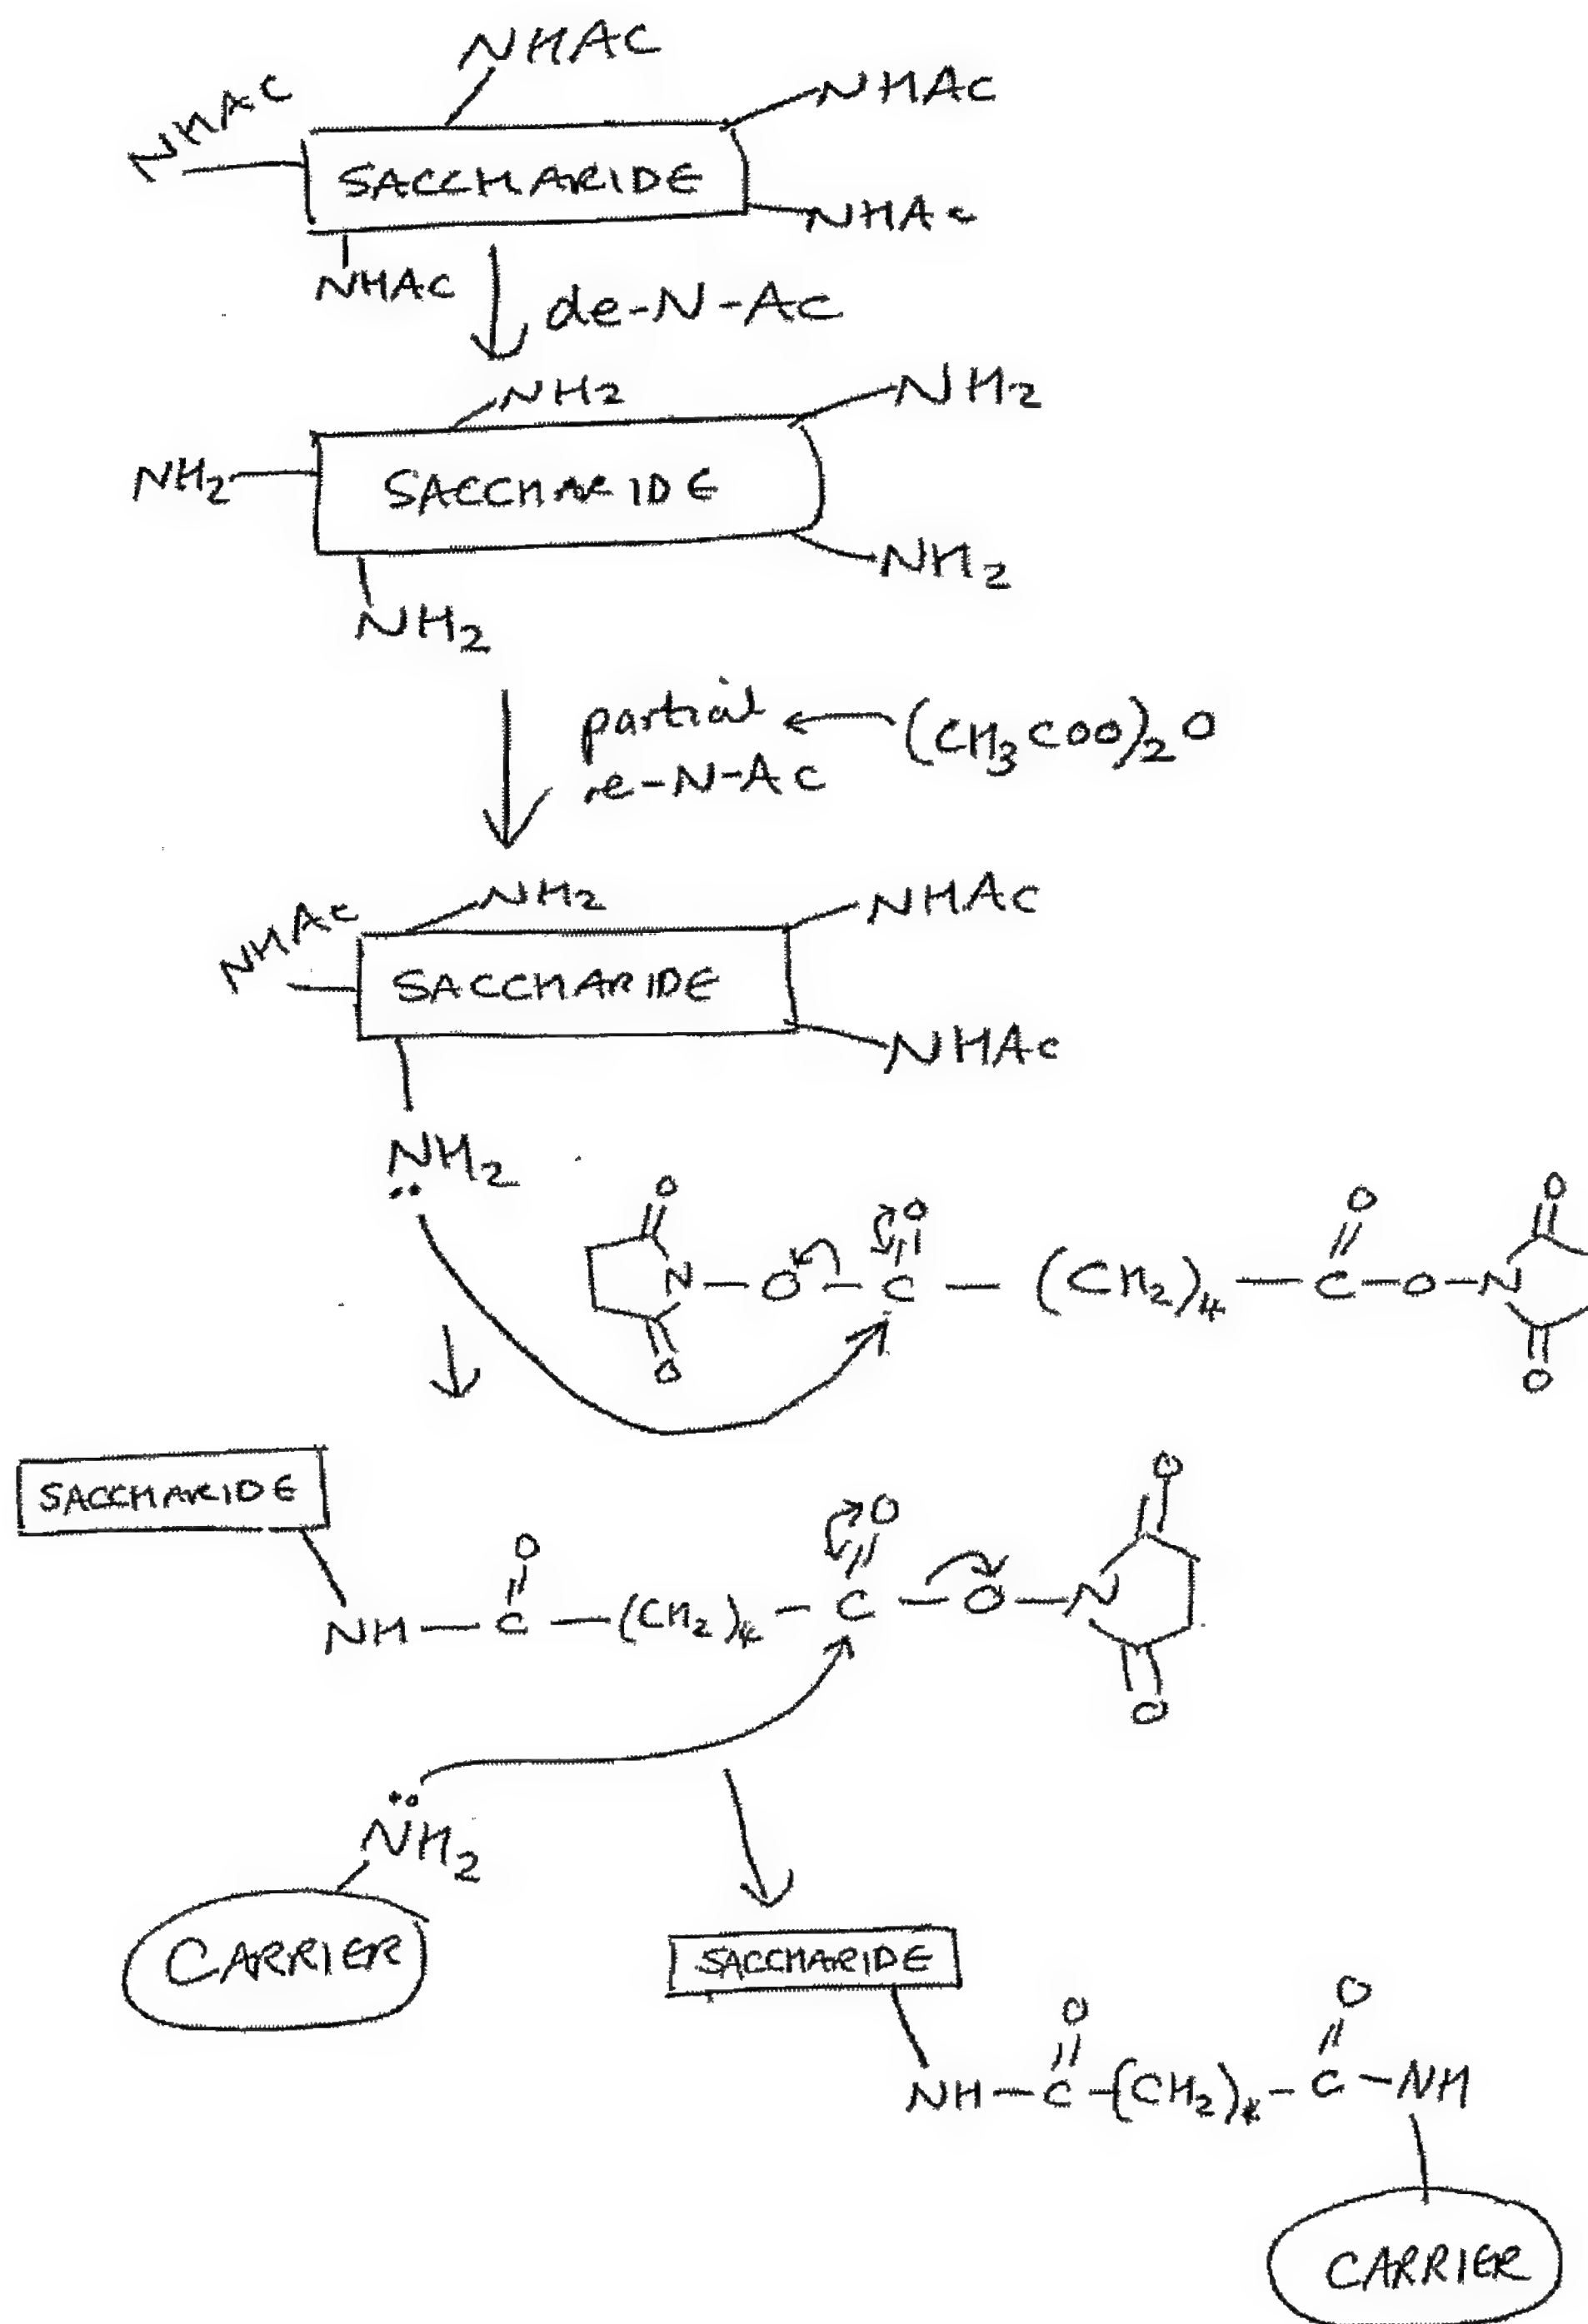 NHAC
NHAC NHAC
SACCHARIDE
NHAc
NHAC
de-N-Ac
NH2
NH2
NH2 SACCHARIDE
NH2
NH2
partial ← (CH3COO)2O
re-N-Ac
NH2 NHAC
NHAc
SACCHARIDE
NHAc
NH2
O O O O
N-O-C-(CH2)4-C-O-N
O O
SACCHARIDE
O O O
NH-C-(CH2)4-C-O-N
O
NH2
CARRIER
SACCHARIDE
O O
NH-C-(CH2)4-C-NH
CARRIER